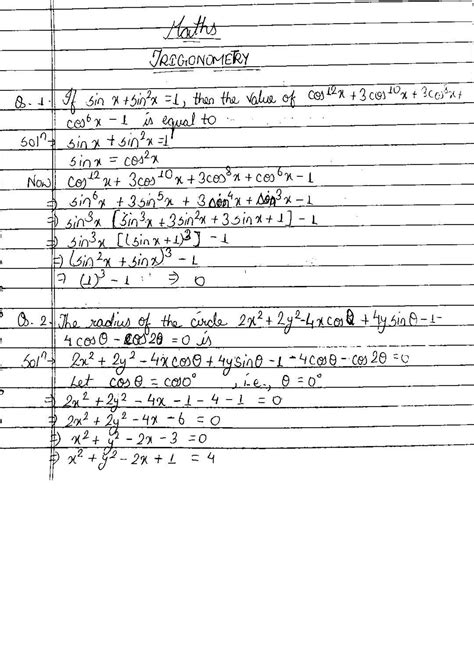 Maths
TRIGONOMETRY
Q. 1. If sin x + sin²x = 1, then the value of cos¹²x + 3cos¹⁰x + 3cos⁸x +
cos⁶x - 1 is equal to
Solⁿ→ sin x + sin²x = 1
sin x = cos²x
Now cos¹²x + 3cos¹⁰x + 3cos⁸x + cos⁶x - 1
⇒ sin⁶x + 3sin⁵x + 3sin⁴x + sin³x - 1
⇒ sin³x [sin³x + 3sin²x + 3sinx + 1] - 1
⇒ sin³x [(sinx + 1)³] - 1
⇒ (sin²x + sinx)³ - 1
⇒ (1)³ - 1 ⇒ 0
Q. 2. The radius of the circle 2x² + 2y² - 4x cosθ + 4y sinθ - 1 -
4cosθ - cos2θ = 0 is
Solⁿ→ 2x² + 2y² - 4x cosθ + 4y sinθ - 1 - 4cosθ - cos2θ = 0
Let cosθ = cos0° , i.e., θ = 0°
⇒ 2x² + 2y² - 4x - 1 - 4 - 1 = 0
⇒ 2x² + 2y² - 4x - 6 = 0
⇒ x² + y² - 2x - 3 = 0
⇒ x² + y² - 2x + 1 = 4